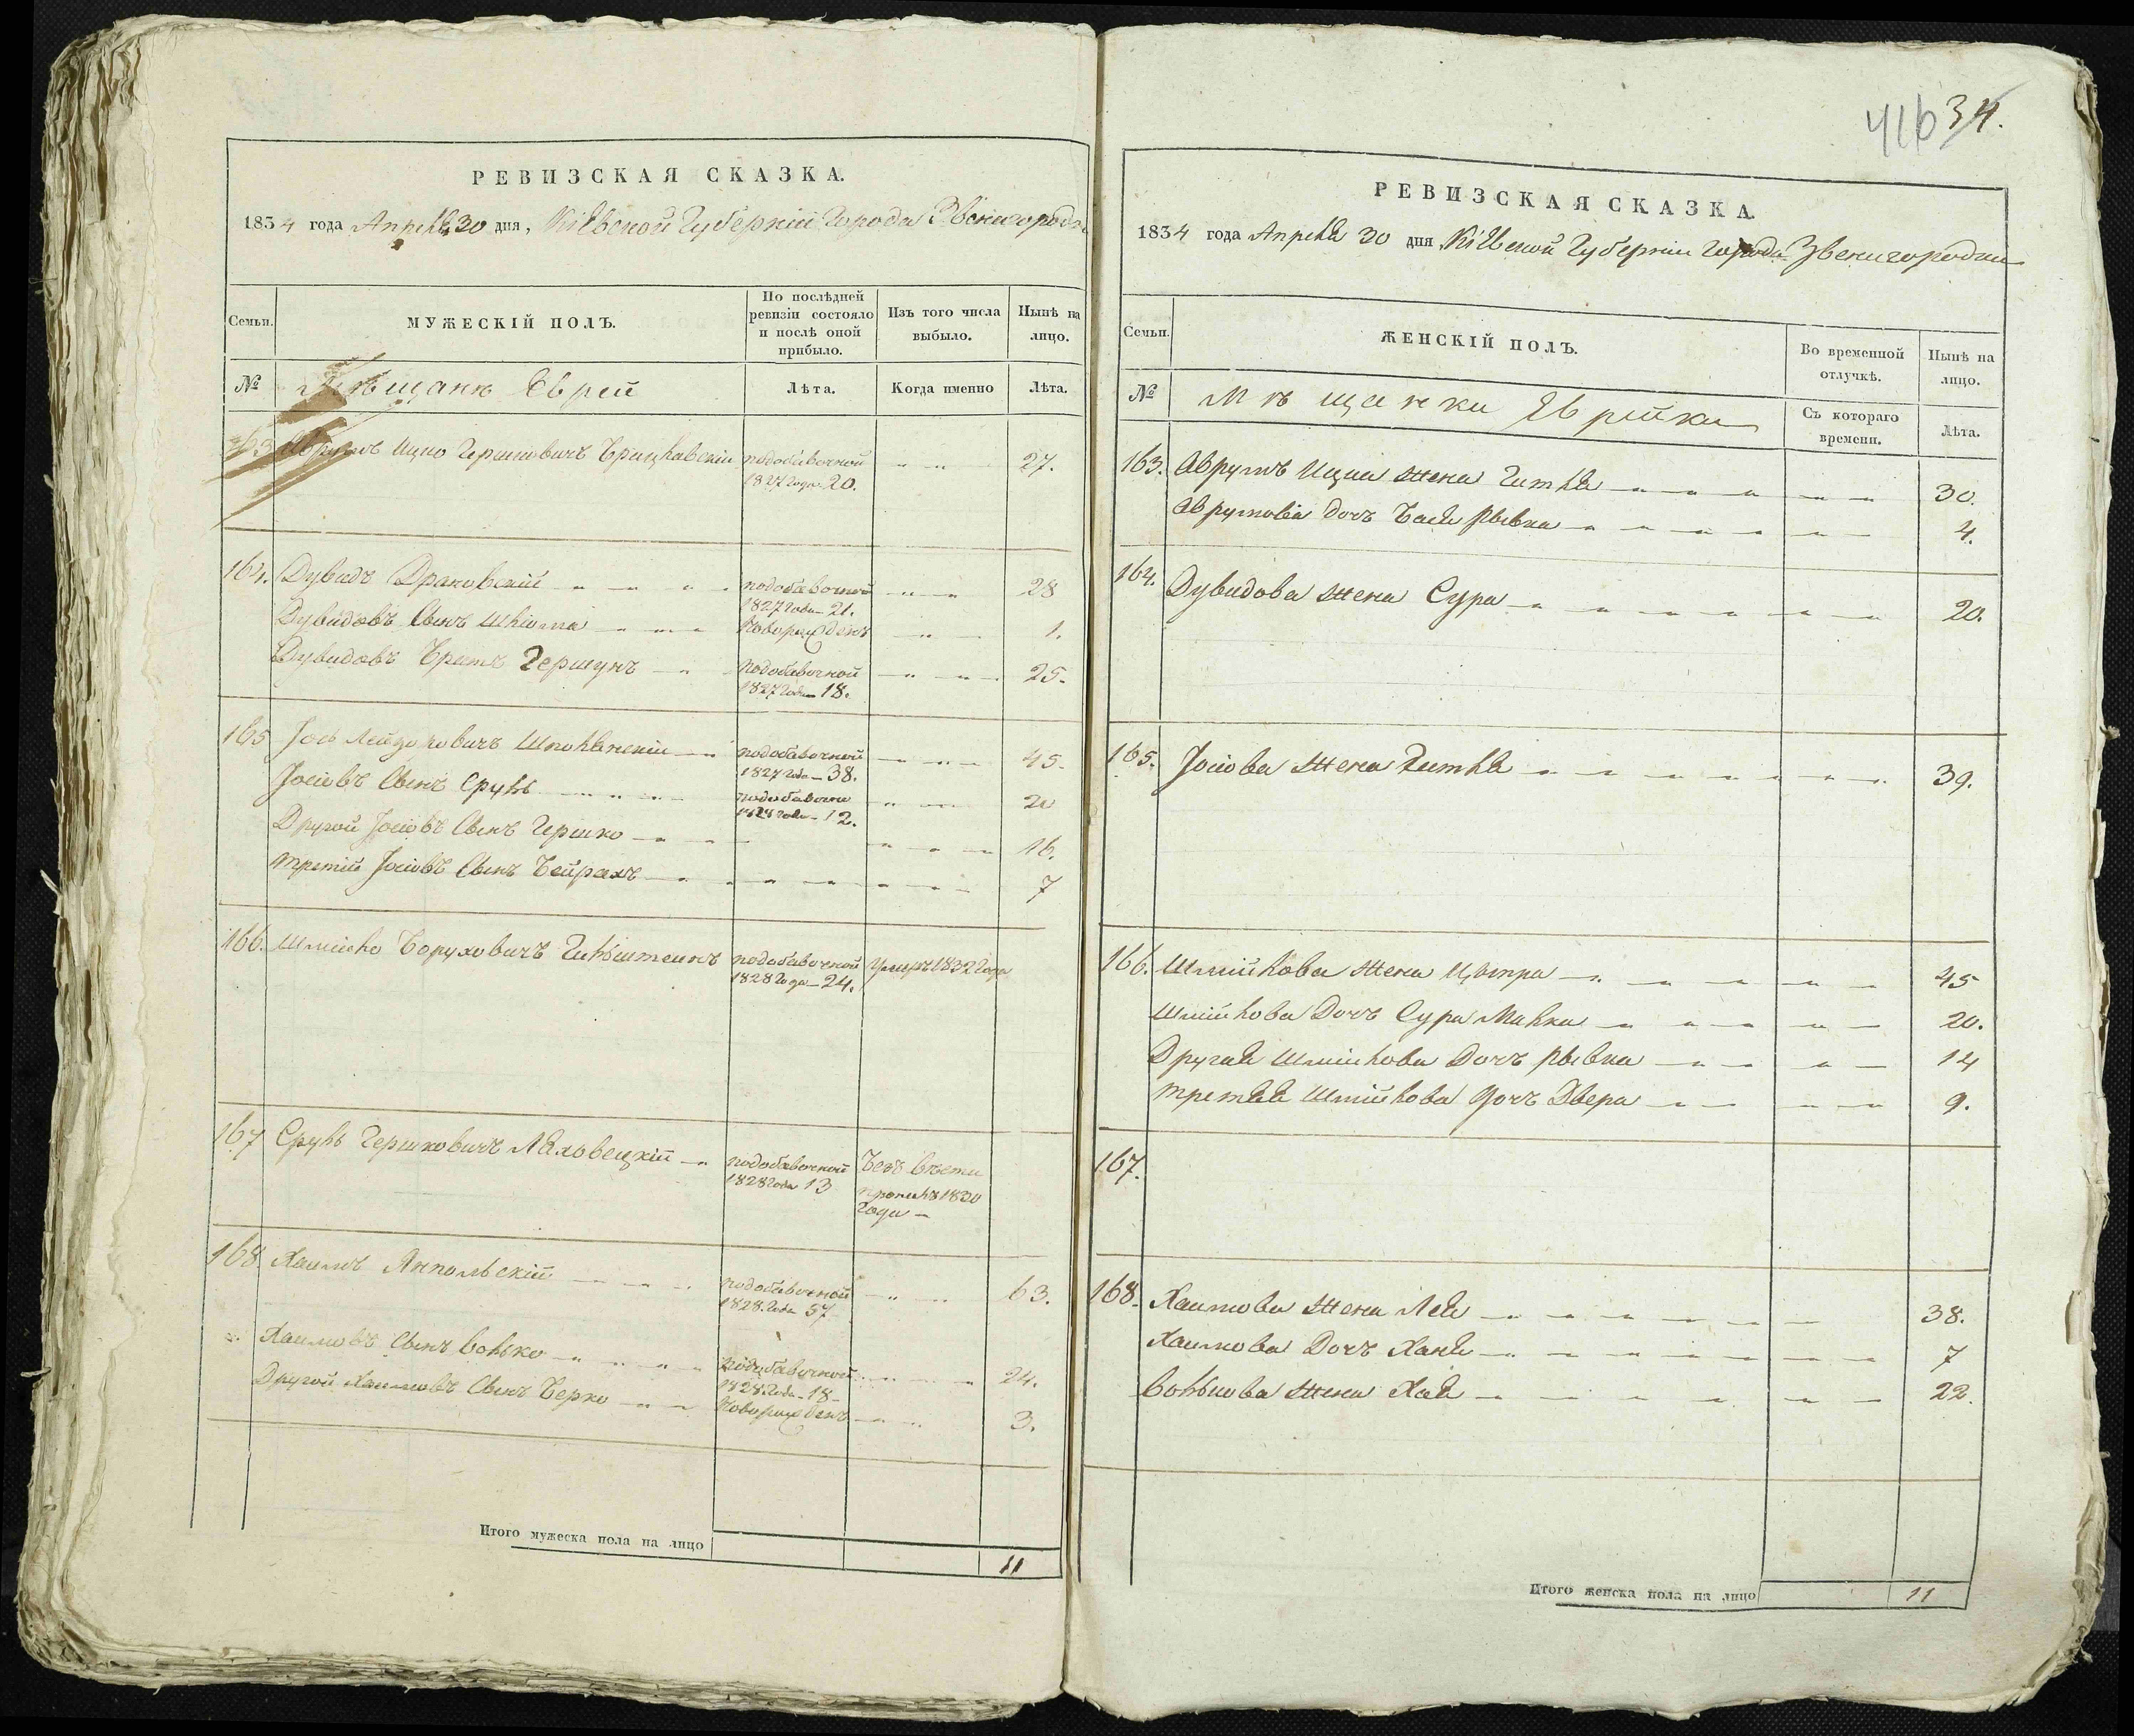 РЕВИЗСКАЯ СКАЗКА.
1834 года Апреля 30 дня, Кіевской Губерніи Города Звенигородки
Семьи.
МУЖЕСКІЙ ПОЛЪ.
По послѣдней ревизіи состояло и послѣ оной прибыло.
Изъ того числа выбыло.
Нынѣ на лицо.
№
Мѣщанѣ Еврей
Лѣта.
Когда именно
Лѣта.
163 Аврумъ Ицко Гершковичъ подобавочной 27.
1827 Года 20.
164. Дувидъ Драковскій подобавочной 28
1827 Года 21.
Дувидовъ Сынъ Шліома Новорожденъ 1.
Дувидовъ Братъ Гершунъ подобавочной 25.
1827 Года 18.
165 Іось Шполянскій подобавочной 45.
1827 Года 38.
Іосіовъ Сынъ Сруль подобавочной 20
Года 12.
Другой Іосіовъ Сынъ Гершко 16.
Третій Іосіовъ Сынъ Бейрахъ 7
166. Шмійло Боруховичъ подобавочной Умеръ 1832 Года
1828 Года 24.
167 Сруль Гершковичъ подобавочной Безъ вѣсти
1828 Года 13 пропалъ 1830
Года
168 Хаимъ Ямпольскій подобавочной 63.
1828 Года 57
Хаимовъ Сынъ Волько подобавочной 24.
1828 Года 18
Другой Хаимовъ Сынъ Берко Новорожденъ 3.
Итого мужеска пола на лицо 11
416 34.
РЕВИЗСКАЯ СКАЗКА.
1834 года Апреля 30 дня Кіевской Губерніи города Звенигородки
Семьи.
ЖЕНСКІЙ ПОЛЪ.
Во временной отлучкѣ.
Нынѣ на лицо.
№
Мѣщанки Еврейки
Съ котораго времени.
Лѣта.
163. Аврумъ Ицка жена Гитля 30.
Аврумовіа дочъ Бася Рывка 4.
164. Дувидова жена Сура 20.
165. Іосіова жена Гитля 39.
166. Шмійлова жена Цыпра 45
Шмійлова Дочъ Сура Малка 20.
Другая Шмійлова Дочъ Рывка 14
Третяя Шмійлова Дочъ Двера 9.
167.
168. Хаимова жена Лея 38.
Хаимова Дочъ Ханя 7
Волькова жена Хая 22.
Итого женска пола на лицо 11